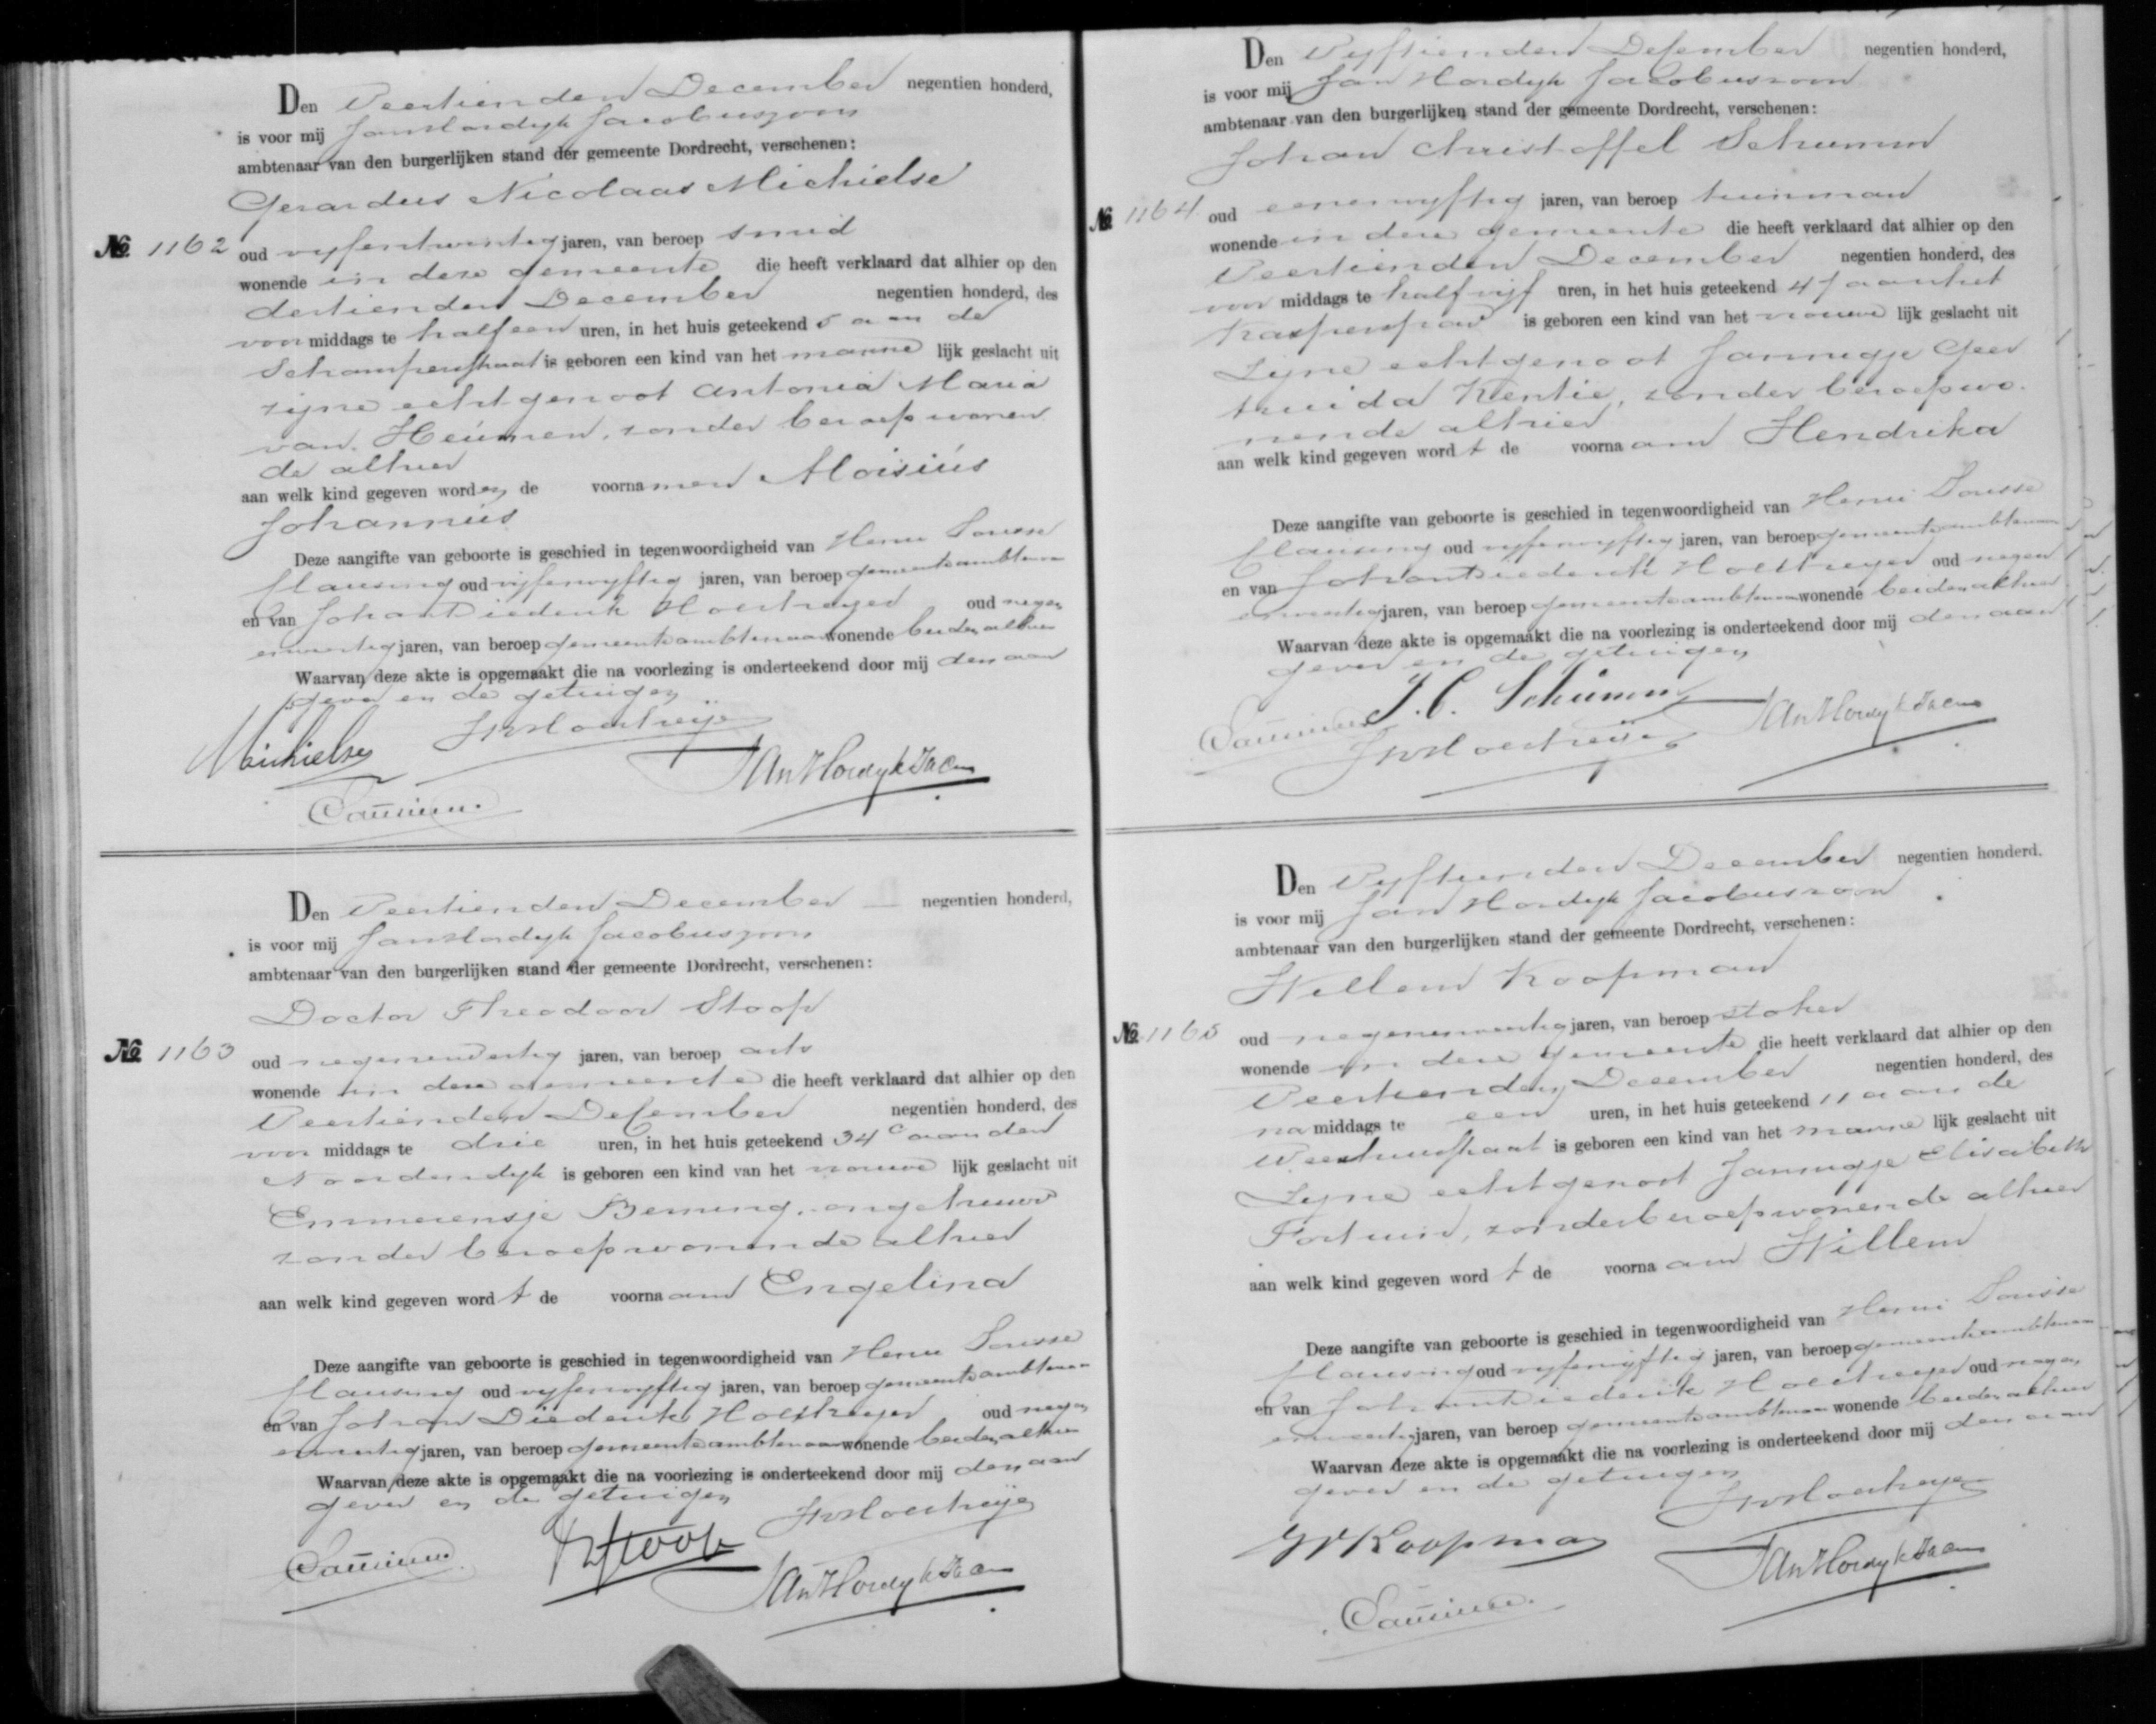 Den Veertienden December negentien honderd,
is voor mij Jan Hordijk Jacobuszoon
ambtenaar van den burgerlijken stand der gemeente Dordrecht, verschenen:
Gerardus Nicolaas Michielse
№ 1162 oud vyfentwintig jaren, van beroep smid
wonende in deze gemeente die heeft verklaard dat alhier op den
dertienden December negentien honderd, des
voor middags te half een uren, in het huis geteekend 5 aan de
straat is geboren een kind van het manne lijk geslacht uit
zijne echtgenoot Antonia Maria
van Heumen, zonder beroep wonen
de alhier
aan welk kind gegeven worden de voornamen Aloisius
Johannes
Deze aangifte van geboorte is geschied in tegenwoordigheid van Henri Sousse
Clausing oud vijfenvyftig jaren, van beroep gemeenteambtenaar
en van Johan Diederik Hoestreyer oud negen
enveertig jaren, van beroep gemeenteambtenaar wonende beiden alhier
Waarvan deze akte is opgemaakt die na voorlezing is onderteekend door mij den aan
gever en de getuigen
Michielse
Jan Hordyk Jaczn
Den Veertienden December negentien honderd,
is voor mij Jan Hordijk Jacobuszoon
ambtenaar van den burgerlijken stand der gemeente Dordrecht, verschenen:
Doctor Theodoor Stoop
№ 1163 oud negenendertig jaren, van beroep arts
wonende in deze gemeente die heeft verklaard dat alhier op den
Veertienden December negentien honderd, des
voor middags te drie uren, in het huis geteekend 34c aan den
Noordendijk is geboren een kind van het vrouwe lijk geslacht uit
Emmerensje Beming, ongehuwd
zonder beroep wonende alhier
aan welk kind gegeven word t de voorna am Engelina
Deze aangifte van geboorte is geschied in tegenwoordigheid van Henri Sousse
Clausing oud vyfenvyftig jaren, van beroep gemeenteambtenaar
en van Johan Diederik Hoestreyer oud negen
enveertig jaren, van beroep gemeenteambtenaar wonende beiden alhier
Waarvan deze akte is opgemaakt die na voorlezing is onderteekend door mij den aan
gever en de getuigen
Stoop
Jan Hordyk Jaczn
Den Vyftienden December negentien honderd,
is voor mij Jan Hordyk Jacobuszoon
ambtenaar van den burgerlijken stand der gemeente Dordrecht, verschenen:
Johan Christoffel Schumm
№ 1164 oud eenenvyftig jaren, van beroep tuinman
wonende in deze gemeente die heeft verklaard dat alhier op den
Veertienden December negentien honderd, des
voor middags te half vijf uren, in het huis geteekend 47 aan het
Kasperspad is geboren een kind van het vrouwe lijk geslacht uit
Zijne echtgenoot Jannigje Geer
truida Kentie, zonder beroep wo
nende alhier
aan welk kind gegeven word t de voorna am Hendrika
Deze aangifte van geboorte is geschied in tegenwoordigheid van Henri Sousse
Clausing oud vyfenvyftig jaren, van beroep gemeenteambtenaar
en van Johan Diederik Hoestreyer oud negen
enveertig jaren, van beroep gemeenteambtenaar wonende beiden alhier
Waarvan deze akte is opgemaakt die na voorlezing is onderteekend door mij den aan
gever en de getuigen
J. C. Schumm
Jan Hordyk Jaczn
Den Vyftienden December negentien honderd.
is voor mij Jan Hordyk Jacobuszoon
ambtenaar van den burgerlijken stand der gemeente Dordrecht, verschenen:
Willem Koopman
№ 1165 oud negenenveertig jaren, van beroep stoker
wonende in deze gemeente die heeft verklaard dat alhier op den
Veertienden December negentien honderd, des
na middags te een uren, in het huis geteekend 11 aan de
straat is geboren een kind van het manne lijk geslacht uit
Zijne echtgenoot Jannigje Elisabeth
Fortuin, zonder beroep wonende alhier
aan welk kind gegeven word t de voorna am Willem
Deze aangifte van geboorte is geschied in tegenwoordigheid van Henri Sousse
Clausing oud vyfenvijftig jaren, van beroep gemeenteambtenaar
en van Johan Diederik Hoestreyer oud negen
enveertig jaren, van beroep gemeenteambtenaar wonende beiden alhier
Waarvan deze akte is opgemaakt die na voorlezing is onderteekend door mij den aan
gever en de getuigen
W Koopman
Jan Hordyk Jaczn